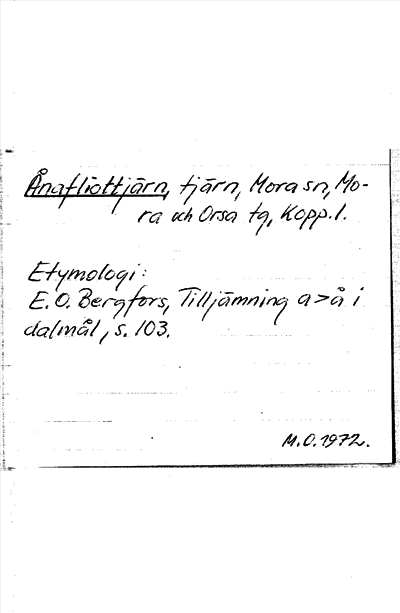 Ånafliottjärn, tjärn, Mora sn, Mo-
ra och Orsa tg, Kopp. l.
Etymologi:
E. O. Bergfors, Tilljämning a>å i
dalmål, s. 103.
M.O. 1972.